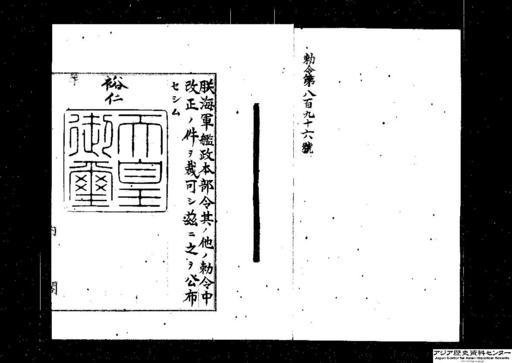 勅令第八百九十六號
朕海軍艦政本部令其ノ他ノ勅令中
改正ノ件ヲ裁可シ茲ニ之ヲ公布
セシム
裕仁
天皇
御璽
内
閣
アジア歴史資料センター
Japan Center for Asian Historical Records